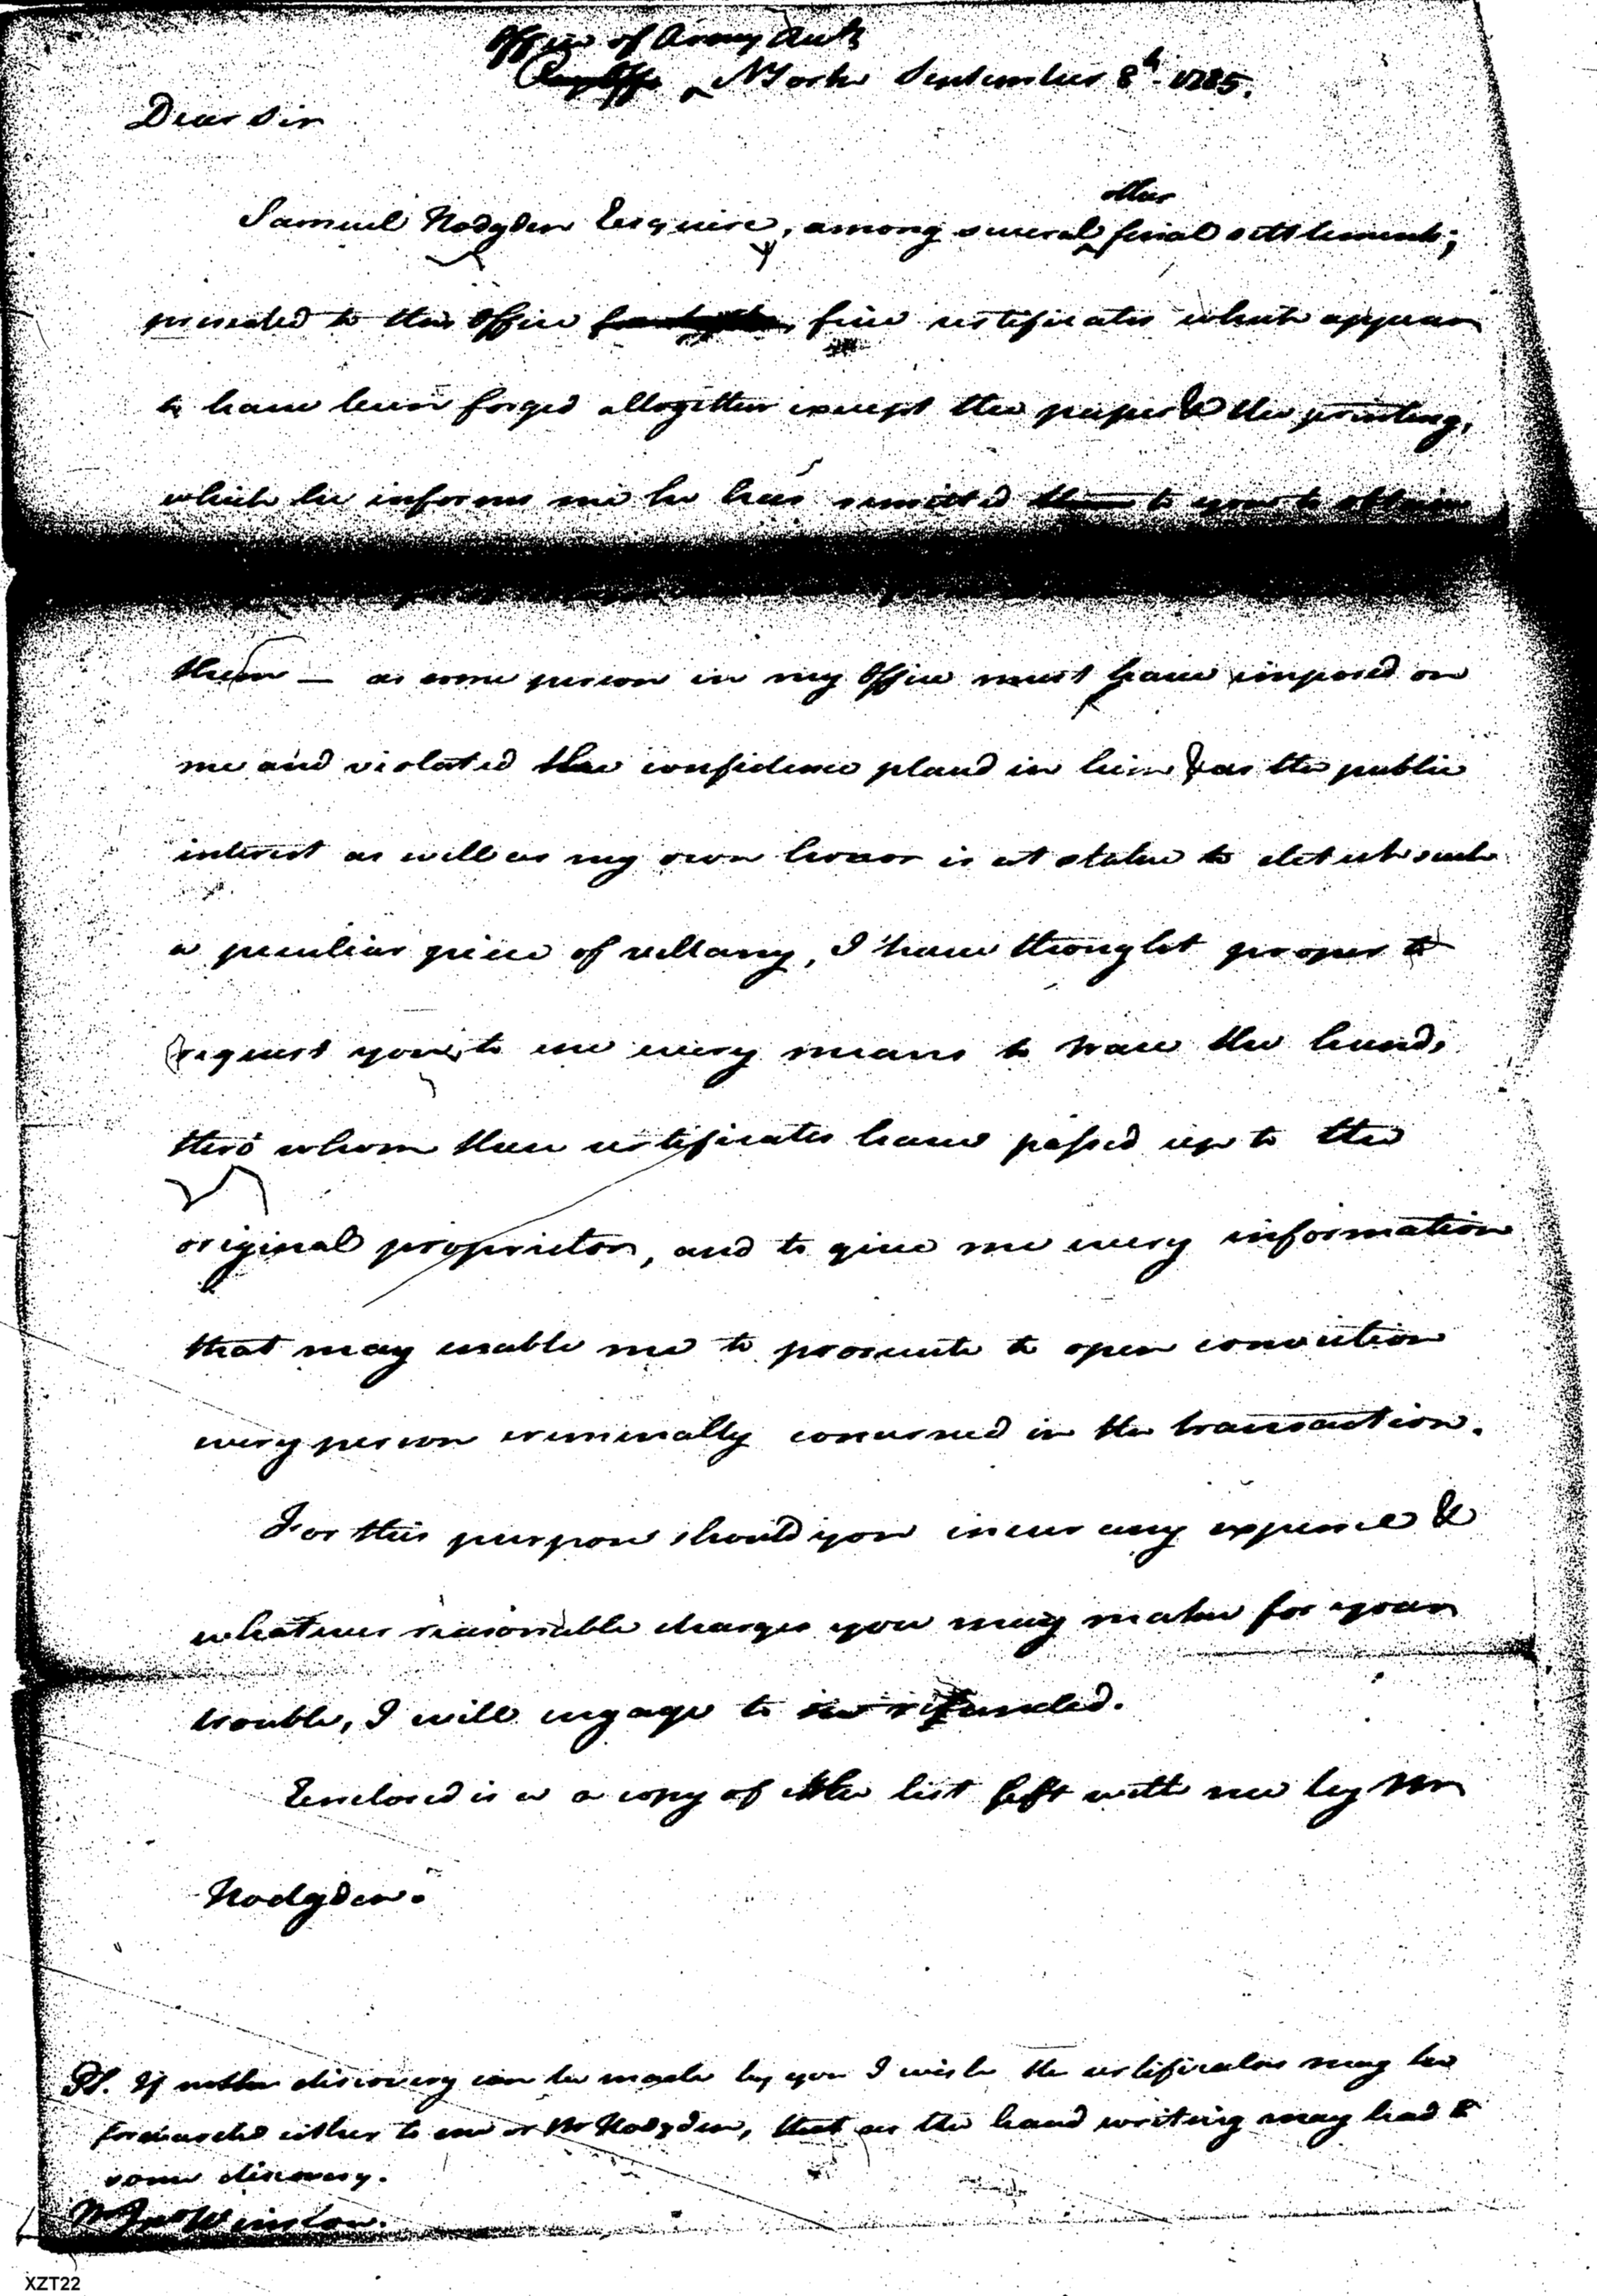 Office of Army Accts
NYork September 8th 1785.
Dear Sir
other
Samuel Hodgden Esquire, among several final settlements;
presented to this Office five certificates which appear
to have been forged altogether except the paper & the printing,
which he informs me he has remitted them to you to obtain
them — as some person in my Office must have imposed on
me and violated the confidence placed in him & as the public
interest as well as my own honor is at stake to detect such
a peculiar piece of vellany, I have thought proper to
request you to use every means to trace the hands
thro whom these certificates have passed up to the
original proprietor, and to give me every information
that may enable me to prosecute to open conviction
every person creminally concerned in the transaction.
For this purpose should you incur any expence &
whatever reasonable charges you may make for your
trouble, I will engage to refunded.
Enclosed is a copy of the list left with me by Mr
Hodgden.
PS. If nother discovery can be made by you I wish the certificates may be
forwarded either to me or Mr Hodgden, that as the hand writing may lead to
some discovery.
Mr Jno Winslow.
XZT22